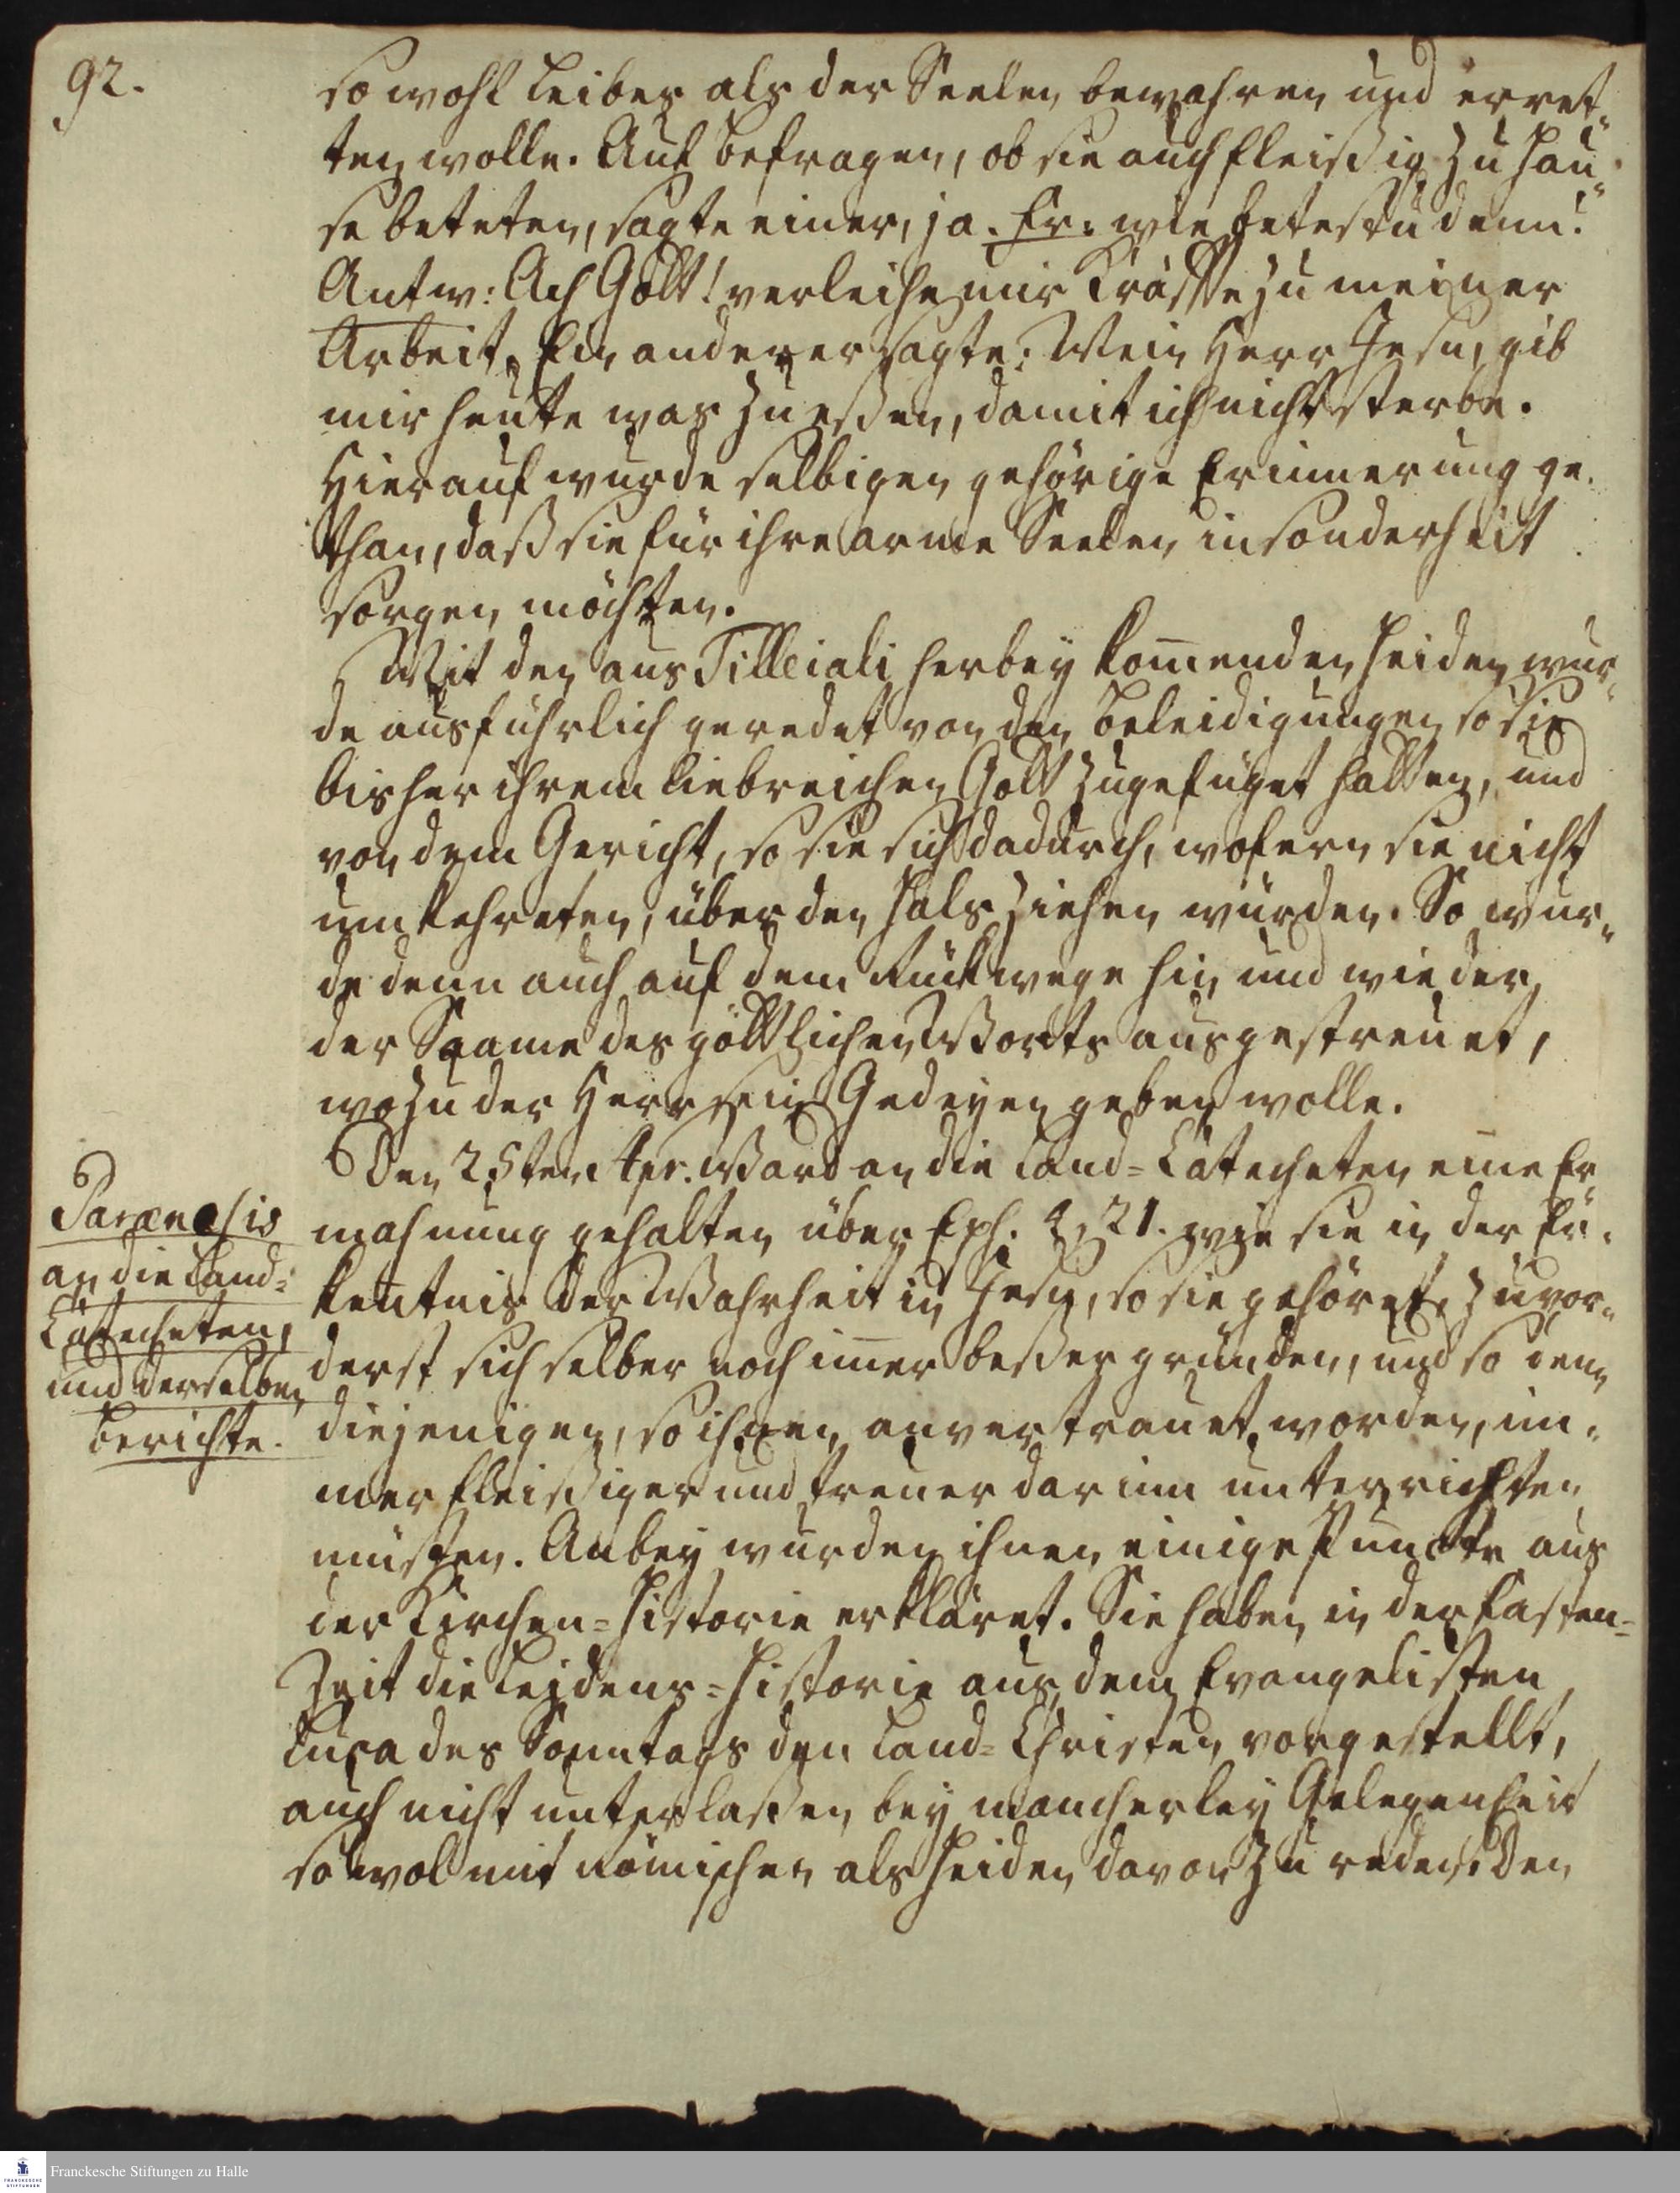 92.
so wohl Leibes als der Seelen bewahren und erret-
ten wolle. Auf befragen, ob sie auch fleißig zu Hau-
se beteten, sagte einer, ja. Fr: wie betest du denn?
Antw: Ach Gott! verleihe mir Kräffte zu meiner
Arbeit. Ein anderer sagte: Mein Herr Jesu, gib
mir heute was zu eßen, damit ich nicht sterbe.
Hierauf wurde selbigen gehörige Erinnerung ge-
than, daß sie für ihre arme Seelen insonderheit
sorgen möchten.
Mit den aus Tilleiali herbey kom̅enden Heiden wur-
de ausführlich geredet von den Beleidigungen so sie
bisher ihrem liebreichen Gott zugefüget hätten, und
von dem Gericht, so sie sich dadurch, wofern sie nicht
umkehreten, über den Hals ziehen würden. So wur-
de denn auch auf dem Rückwege hin und wieder
der Saame des göttlichen Worts ausgestreuet,
wozu der Herr sein Gedeyen geben wolle.
Den 25ten Apr. Ward an die Land-Catecheten eine Er-
mahnung gehalten über Eph. 4, 21. wie sie in der Er-
kentnis der Wahrheit in Jesu, so sie gehöret, zuvor-
derst sich selber noch im̅er beßer gründen, und so denn
diejenigen, so ihnen anvertrauet worden, im-
mer fleißiger und treuer darinn unterrichten
müsten. Anbey wurden ihnen einige Puncte aus
der Kirchen-Historie erkläret. Sie haben in der Fasten-
Zeit die Leidens-Historie aus dem Evangelisten
Luca des Sonntags den Land-Christen vorgestellt,
auch nicht unterlaßen bey mancherley Gelegenheit
so wol mit Römischen als Heiden davon zu reden. Den
Parænesis
an die Land-
Catecheten,
und derselben
Berichte.
Franckesche Stiftungen zu Halle
FRANCKESCHE
STIFTUNGEN